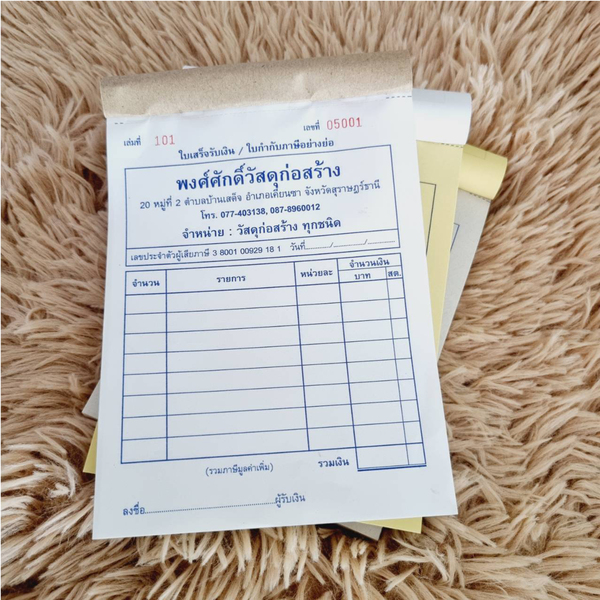 เล่มที่ 101 เลขที่ 05001
ใบเสร็จรับเงิน / ใบกำกับภาษีอย่างย่อ
พงศ์ศักดิ์วัสดุก่อสร้าง
20 หมู่ที่ 2 ตำบลบ้านเสด็จ อำเภอเคียนซา จังหวัดสุราษฎร์ธานี
โทร. 077-403138, 087-8960012
จำหน่าย : วัสดุก่อสร้าง ทุกชนิด
เลขประจำตัวผู้เสียภาษี 3 8001 00929 18 1 วันที่........../........../..........
จำนวน รายการ หน่วยละ จำนวนเงิน
บาท สต.
(รวมภาษีมูลค่าเพิ่ม) รวมเงิน
ลงชื่อ..............................ผู้รับเงิน